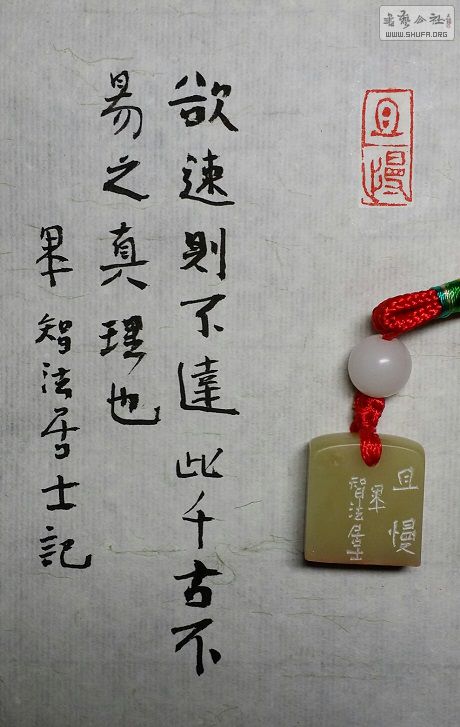 欲速则不達此千古不
易之真理也
畢智法居士記
且慢
且慢
畢
智法居士
書藝公社
WWW.SHUFA.ORG